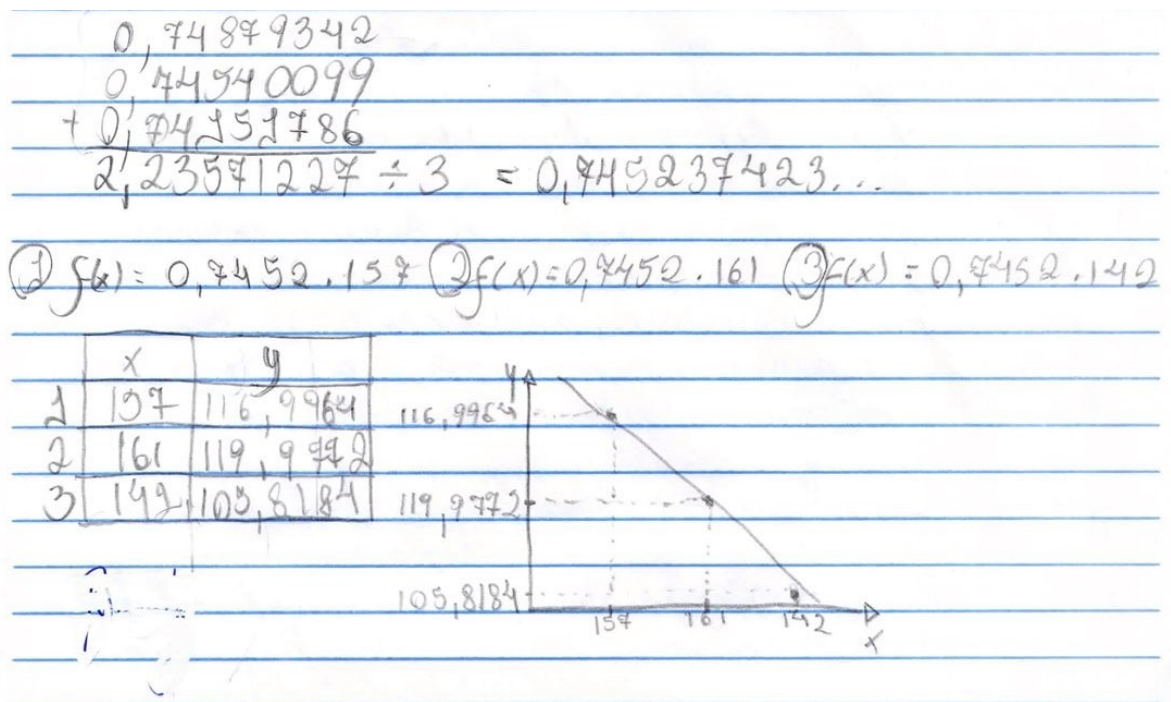 0,74879342
0,74540099
+ 0,74151786
2,23571227 ÷ 3 = 0,745237423...
① f(x) = 0,7452 . 157 ② f(x) = 0,7452 . 161 ③ f(x) = 0,7452 . 142
x y
1 157 116,9964
2 161 119,9772
3 142 105,8184
y
116,9964
119,9772
105,8184
157 161 142
x